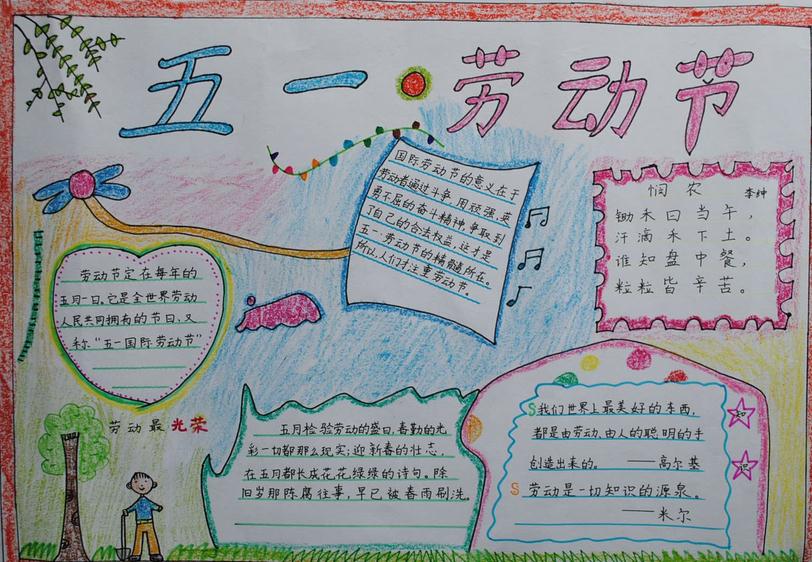 五一·劳动节
国际劳动节的意义在于
劳动者通过斗争,用顽强、英
勇不屈的奋斗精神,争取到
了自己的合法权益,这才是
五一·劳动节的精髓所在。
所以人们才注重劳动节。
悯农 李绅
锄木曰当午,
汗滴禾下土。
谁知盘中餐,
粒粒皆辛苦。
劳动节定在每年的
五月一日,它是全世界劳动
人民共同拥有的节日,又
称“五一国际劳动节”
劳动最光荣
五月检验劳动的盛日,春勤的光
彩一切都那么现实;迎新春的壮志,
在五月都长成花花绿绿的诗句。除
旧岁那陈腐往事,早已被春雨刷洗。
我们世界上最美好的东西,
都是由劳动、由人的聪明的手
创造出来的。——高尔基
劳动是一切知识的源泉。
——米尔